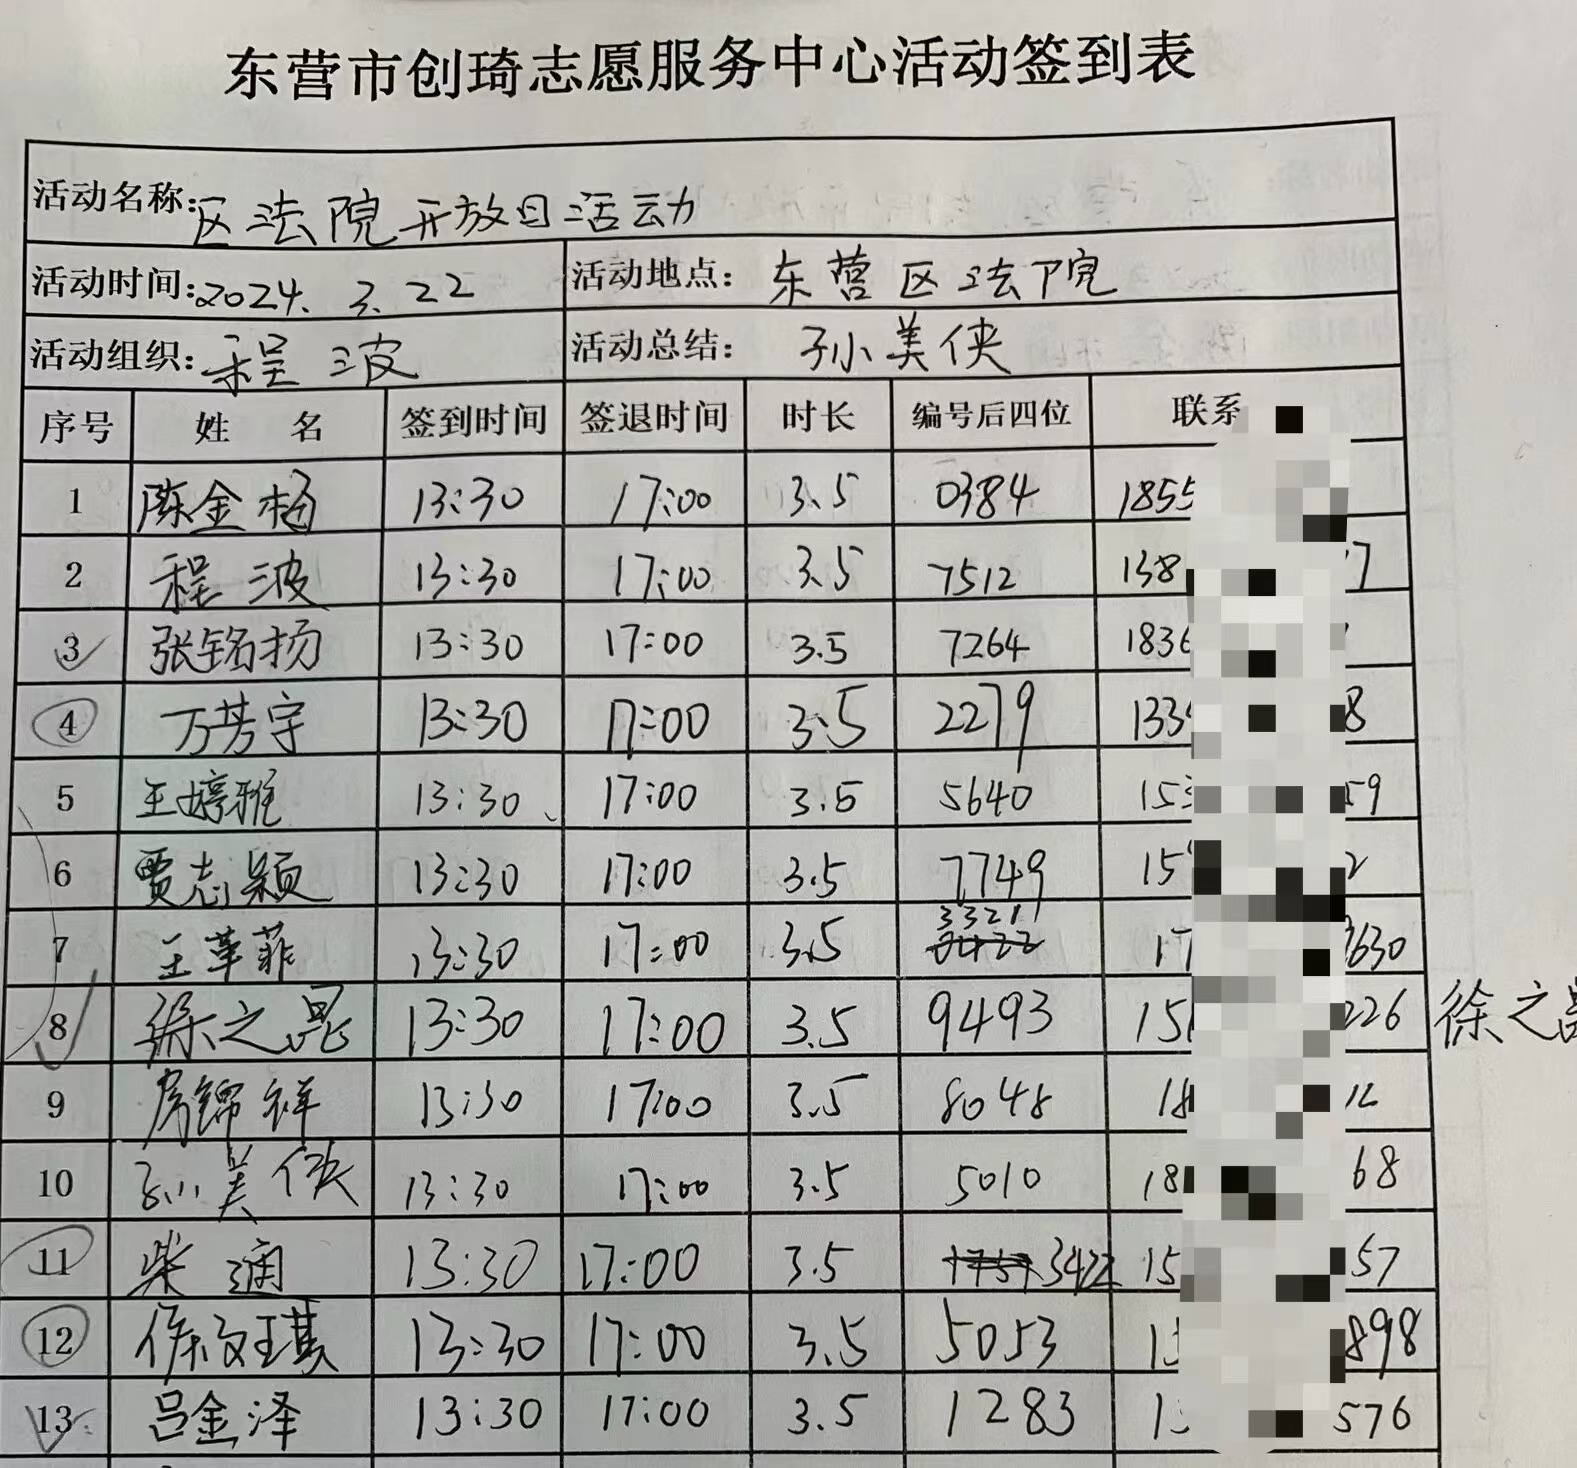 东营市创琦志愿服务中心活动签到表
活动名称:区法院开放日活动
活动时间:2024.3.22 活动地点:东营区法院
活动组织:程波 活动总结:孙小美侠
序号 姓名 签到时间 签退时间 时长 编号后四位 联系
1 陈金杨 13:30 17:00 3.5 0384 1855
2 程波 13:30 17:00 3.5 7512 138 7
3 张铭扬 13:30 17:00 3.5 7264 1836
4 万芳宇 13:30 17:00 3.5 2279 133 8
5 王婷雅 13:30 17:00 3.5 5640 153 59
6 贾志颖 13:30 17:00 3.5 7749 15 2
33211
7 王革菲 13:30 17:00 3.5 17 3630
8 徐之昆 13:30 17:00 3.5 9493 15 226 徐之
9 房锦祥 13:30 17:00 3.5 8048 18 12
10 孙小美侠 13:30 17:00 3.5 5010 18 68
11 柴 13:30 17:00 3.5 1757 3422 15 57
12 徐文琪 13:30 17:00 3.5 5053 1 898
13 吕金泽 13:30 17:00 3.5 1283 1 576